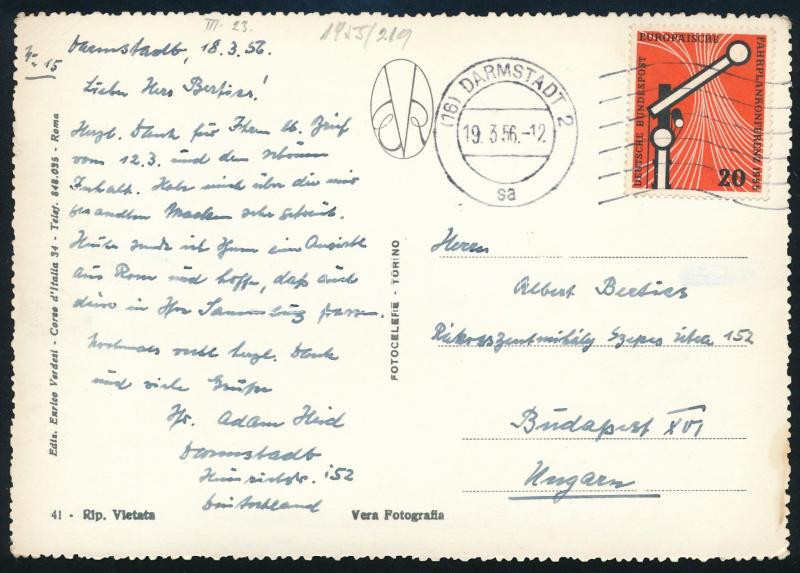 III. 23.
1955/219
Darmstadt, 18.3.56.
Lieber Herr Bertics!
Herzl. Dank für Ihren lb. Brief
vom 12.3. und den schönen
Inhalt. Habe mich über die mir
gesandten Marken sehr gefreut.
Heute sende ich Ihnen eine Ansicht
aus Rom und hoffe, daß auch
diese in Ihre Sammlung passen.
Nochmals recht herzl. Dank
und viele Grüße
Ihr Adam Heid
Darmstadt
Heinrichstr. 152
Deutschland
41 - Rip. Vietata
Vera Fotografia
Ediz. Enrico Verdesi - Corso d'Italia 34 - Telef. 848.095 - Roma
FOTOCELERE - TORINO
(16) DARMSTADT 2
19.3.56.-12
sa
EUROPÄISCHE
FAHRPLANKONFERENZ 1955
DEUTSCHE BUNDESPOST
20
Herrn
Albert Bertics
Rákosszentmihály Szepes utca 152
Budapest XVI
Ungarn